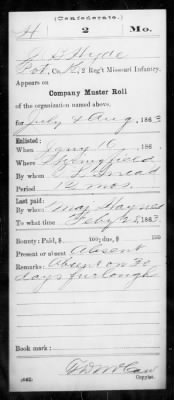 (Confederate.)
H 2 Mo.
J B Hyde
Pvt, Co. K, 2 Reg't Missouri Infantry.
Appears on
Company Muster Roll
of the organization named above,
for July & Aug, 1863
Enlisted:
When Jany 10, 186
Where Springfield
By whom Snead
Period 12 mos.
Last paid:
By whom Maj. Haynes
To what time Feby 28, 1863.
Bounty: Paid, $ 100; due, $ 100
Present or absent Absent
Remarks: Absent on 30
days furlough
Book mark:
(642) Copyist.